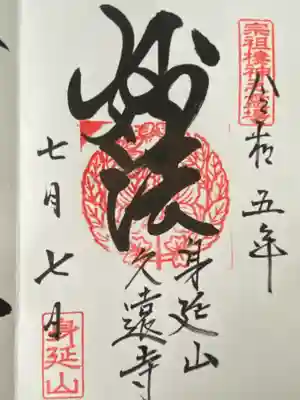 宗祖棲神之霊場
令和五年
妙法
身延山
久遠寺
七月七日
身延山